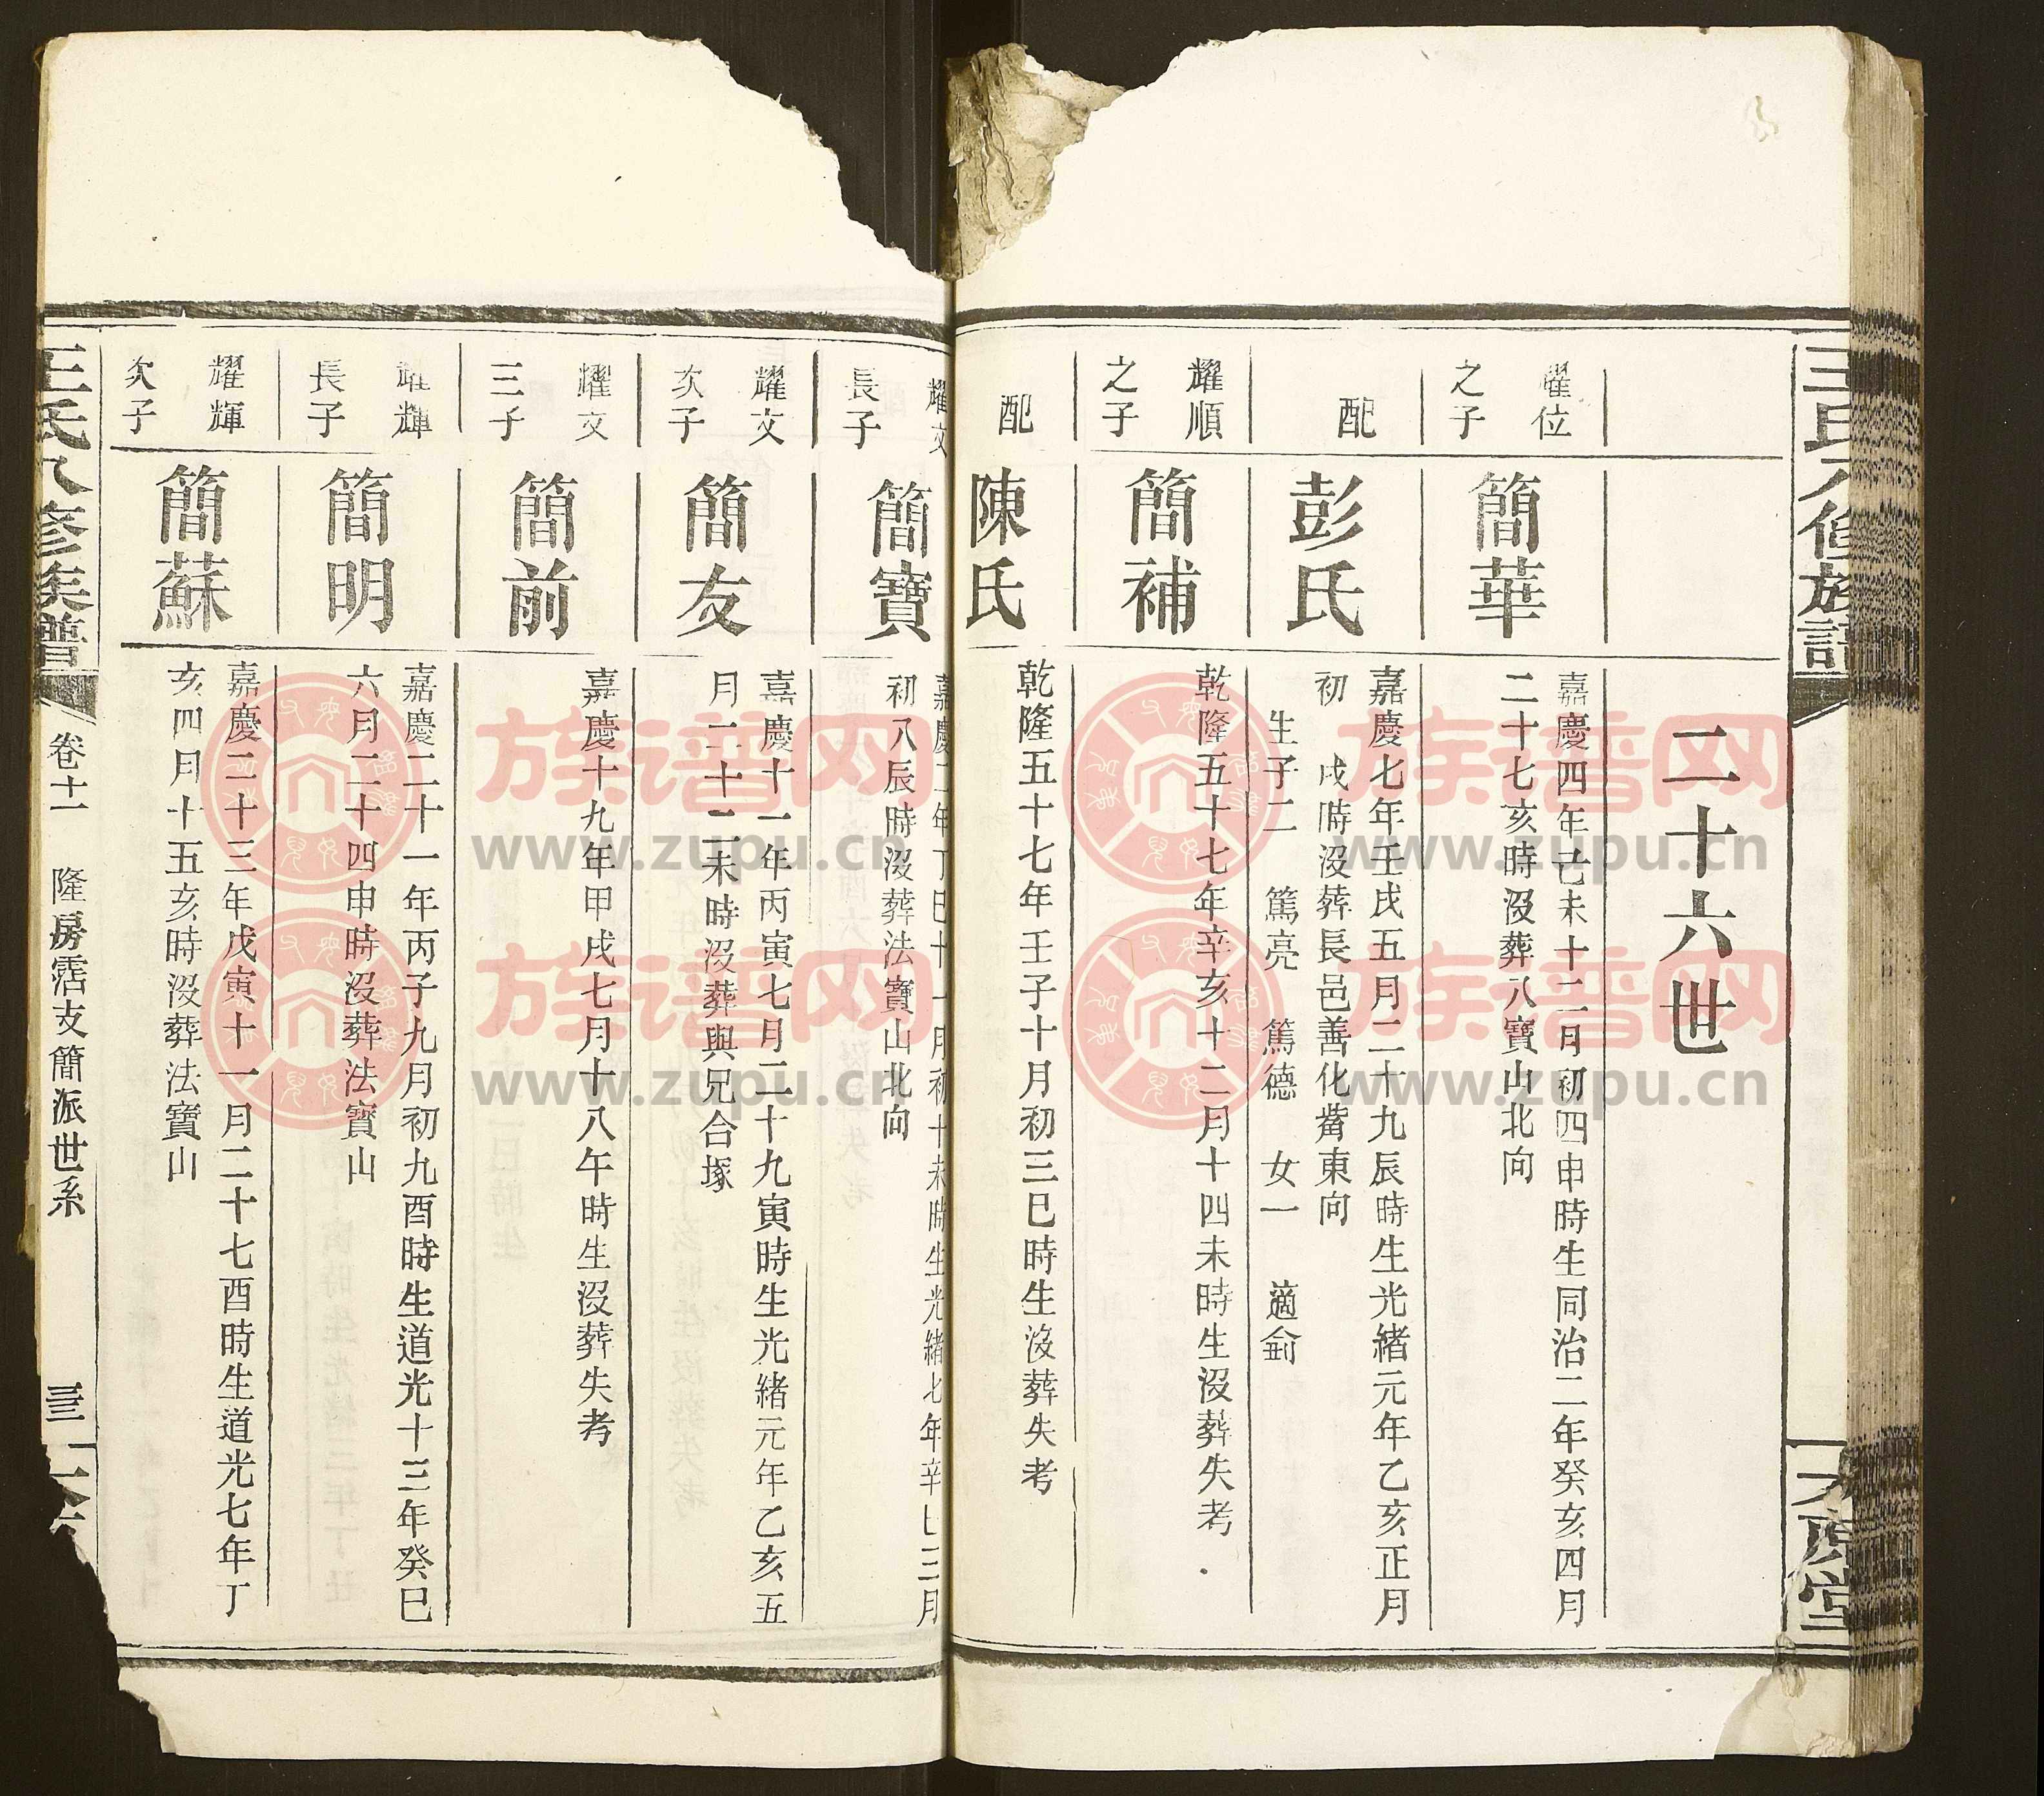 王氏八修族譜
二十六世
耀位
之子
簡華
嘉慶四年己未十二月初四申時生同治二年癸亥四月
二十七亥時沒葬八寶山北向
配
彭氏
嘉慶七年壬戌五月二十九辰時生光緒元年乙亥正月
初 戌時沒葬長邑善化觜東向
生子二 篤亮 篤德 女一 適俞
耀順
之子
簡補
乾隆五十七年辛亥十二月十四未時生沒葬失考
配
陳氏
乾隆五十七年壬子十月初三巳時生沒葬失考
耀文
長子
簡寶
嘉慶二年丁巳十一月初十未時生光緒七年辛巳三月
初八辰時沒葬法寶山北向
耀文
次子
簡友
嘉慶十一年丙寅七月二十九寅時生光緒元年乙亥五
月二十二未時沒葬與兄合塚
耀文
三子
簡前
嘉慶十九年甲戌七月十八午時生沒葬失考
耀輝
長子
簡明
嘉慶二十一年丙子九月初九酉時生道光十三年癸巳
六月二十四申時沒葬法寶山
耀輝
次子
簡蘇
嘉慶二十三年戊寅十一月二十七酉時生道光七年丁
亥四月十五亥時沒葬法寶山
王氏八修族譜
卷十一 隆房霑支簡派世系
族谱网
www.zupu.cn
族谱网
www.zupu.cn
族谱网
www.zupu.cn
族谱网
www.zupu.cn